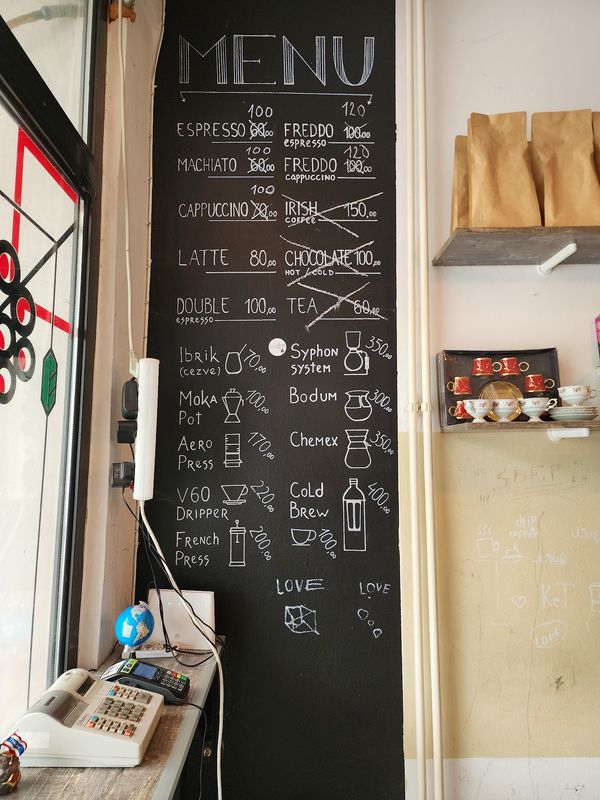 MENU
100
ESPRESSO 60,00
100
MACHIATO 60,00
100
CAPPUCCINO 70,00
LATTE 80,00
DOUBLE 100,00
espresso
120
FREDDO 100,00
espresso
120
FREDDO 100,00
cappuccino
IRISH 150,00
COFFEE
CHOCOLATE 100,00
HOT / COLD
TEA 60,00
Ibrik 70,00
(cezve)
Moka 100,00
Pot
Aero 170,00
Press
V60 220,00
Dripper
French 200,00
Press
Syphon 350,00
system
Bodum 300,00
Chemex 350,00
Cold 400,00
Brew 100,00
LOVE
LOVE